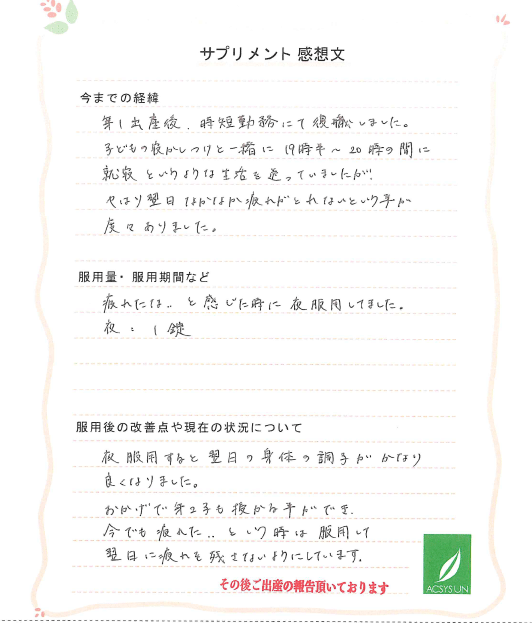 サプリメント 感想文
今までの経緯
第1出産後、時短勤務にて復職しました。
子どもの寝かしつけと一緒に19時半〜20時の間に
就寝というような生活を送っていましたが、
やはり翌日なかなか疲れがとれないという事が
度々ありました。
服用量・服用期間など
疲れたな‥と感じた時に夜服用してました。
夜：1錠
服用後の改善点や現在の状況について
夜服用すると翌日の身体の調子がかなり
良くなりました。
おかげで第2子も授かる事ができ、
今でも疲れた‥という時は服用して
翌日に疲れを残さないようにしています。
その後ご出産の報告頂いております
ACSYSUN